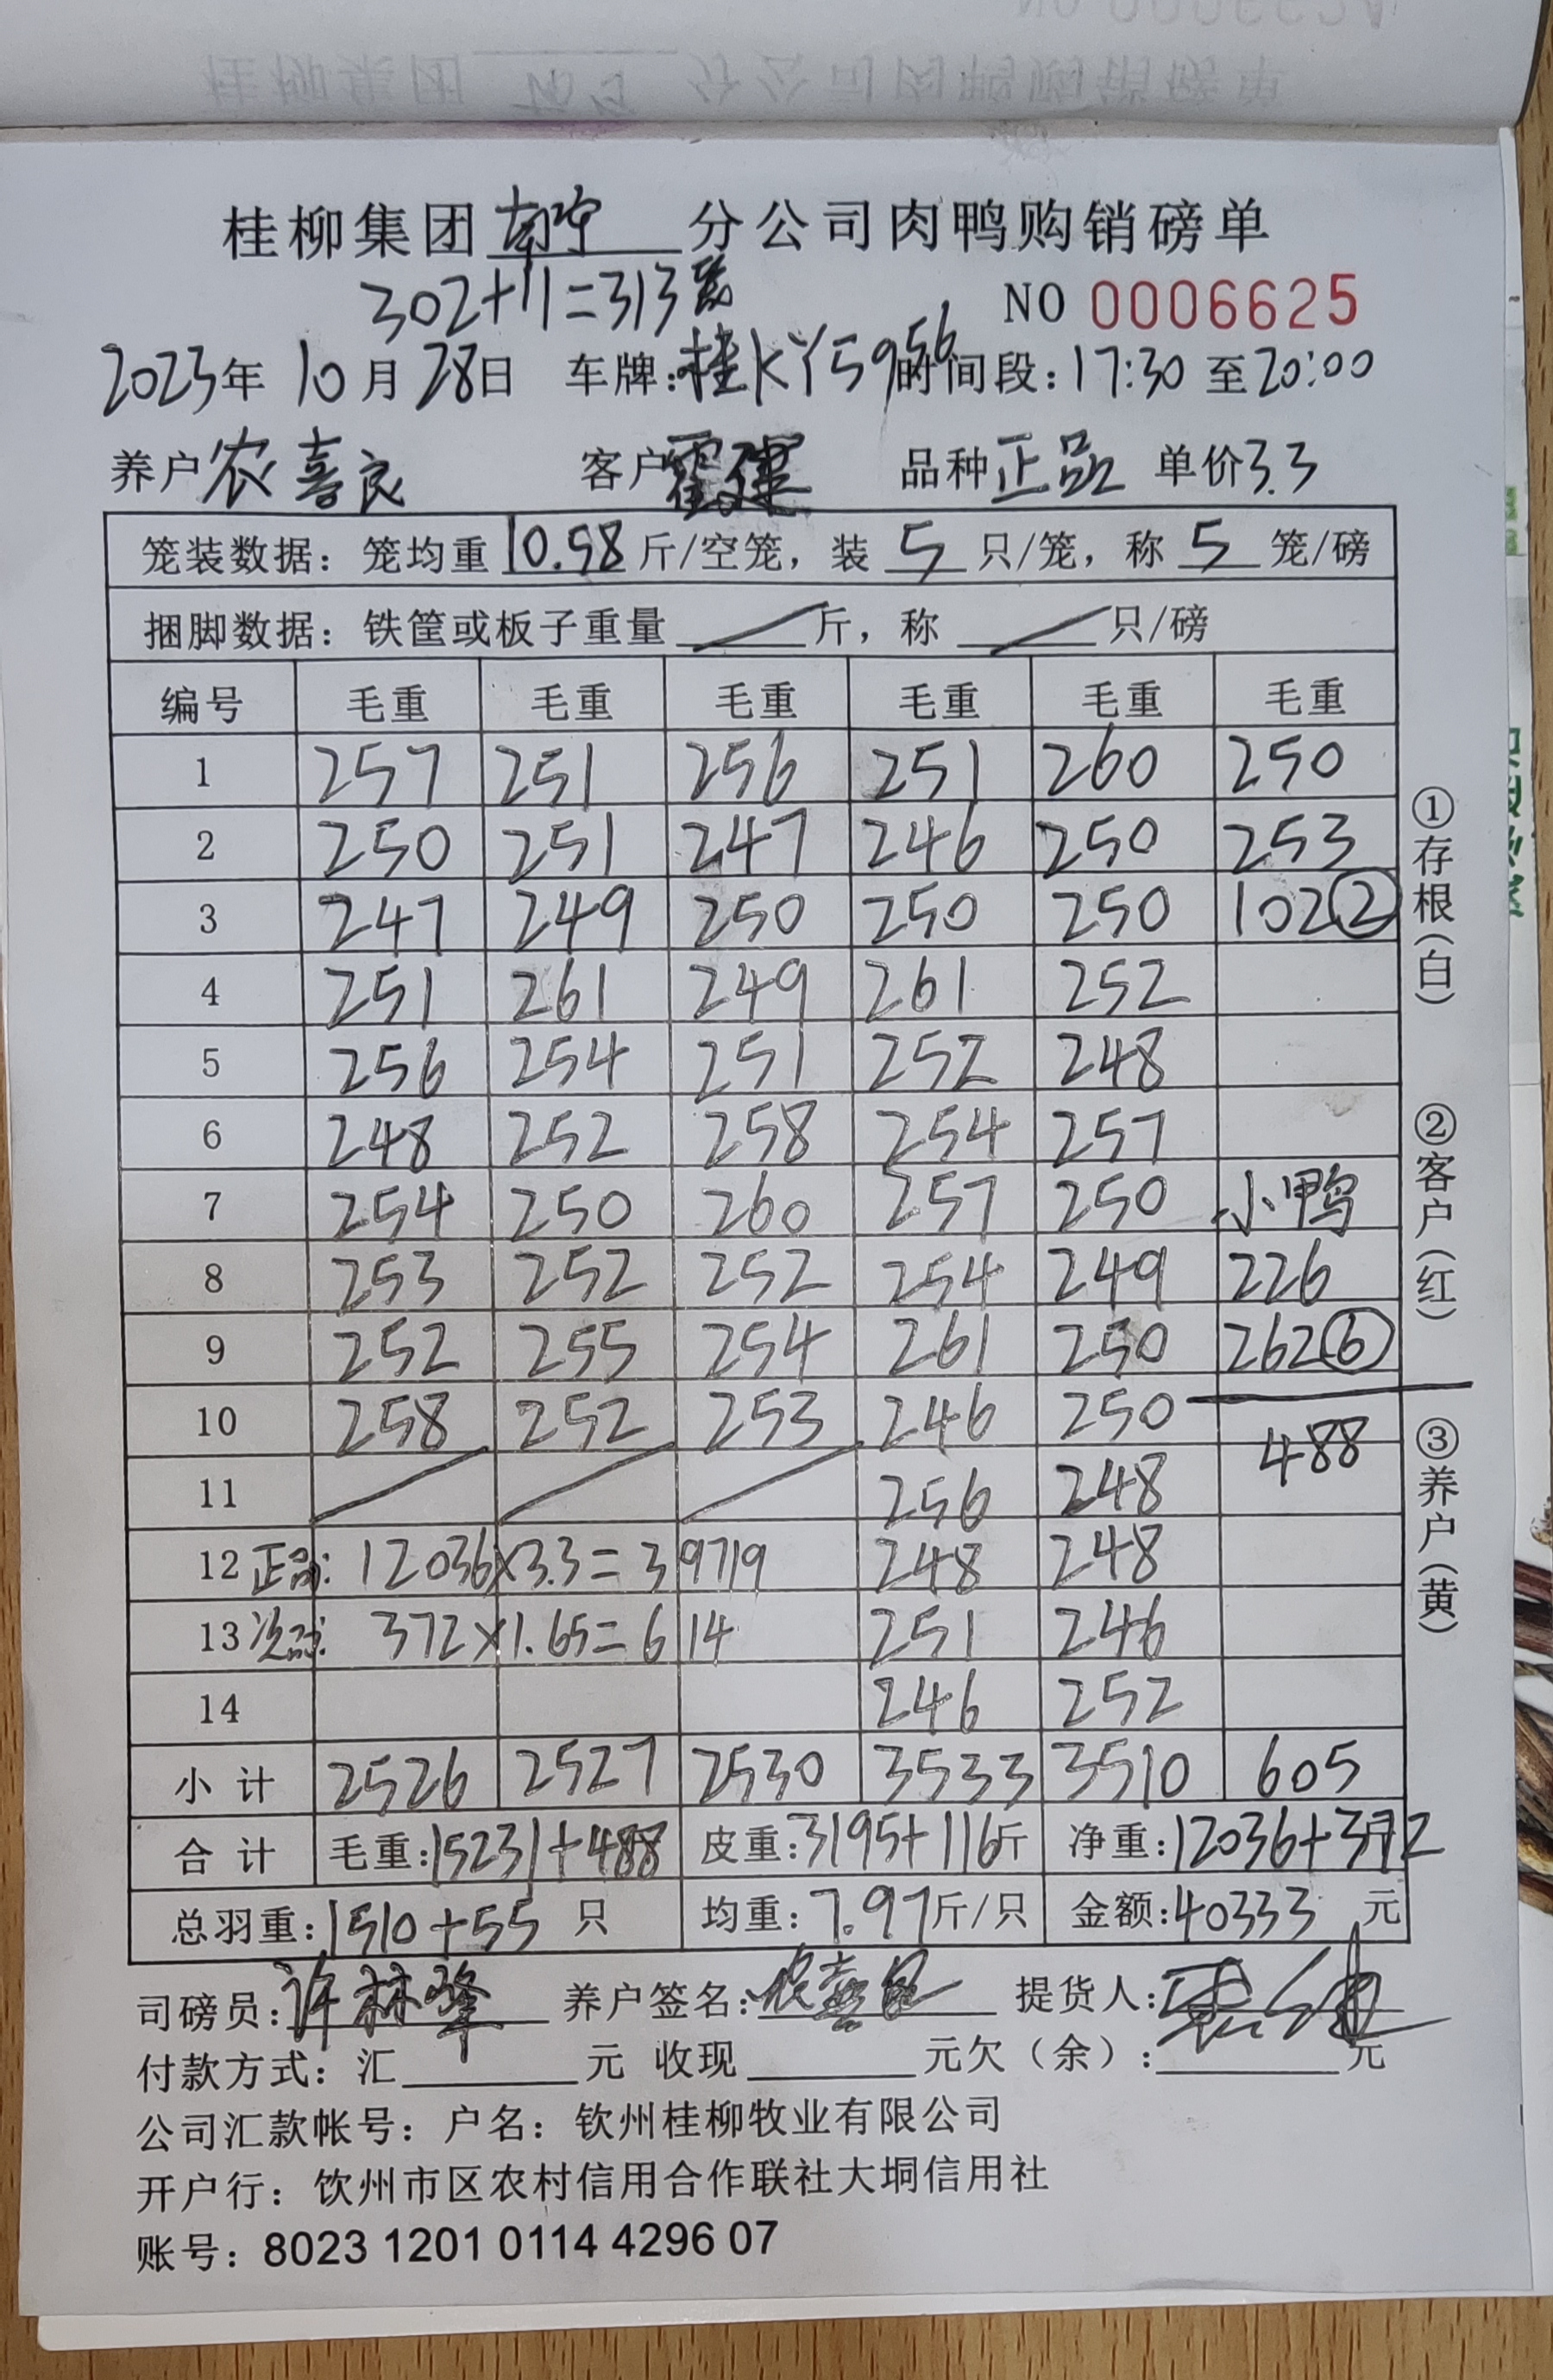 桂柳集团南宁分公司肉鸭购销磅单
302+11=313笼
NO 0006625
2023年10月28日 车牌:桂KY5956 时间段:17:30至20:00
养户农喜良 客户霍建 品种正品 单价3.3
笼装数据：笼均重10.58斤/空笼，装5只/笼，称5笼/磅
捆脚数据：铁筐或板子重量 斤，称 只/磅
编号 毛重 毛重 毛重 毛重 毛重 毛重
1 257 251 256 251 260 250
2 250 251 247 246 250 253
3 247 249 250 250 250 102②
4 251 261 249 261 252
5 256 254 251 252 248
6 248 252 258 254 257
7 254 250 260 257 250 小鸭
8 253 252 252 254 249 226
9 252 255 254 261 250 262⑥
10 258 252 253 246 250
488
11 256 248
12 正品: 12036×3.3=39719 248 248
13 次品: 372×1.65=614 251 246
14 246 252
小计 2526 2527 2530 3533 3510 605
合计 毛重:15231+488 皮重:3195+116斤 净重:12036+372斤
总羽重:1510+55只 均重:7.97斤/只 金额:40333元
司磅员:许林 养户签名:农喜良 提货人:
付款方式：汇 元 收现 元欠（余）: 元
公司汇款帐号：户名：钦州桂柳牧业有限公司
开户行：饮州市区农村信用合作联社大垌信用社
账号：8023 1201 0114 4296 07
①存根（白）
②客户（红）
③养户（黄）